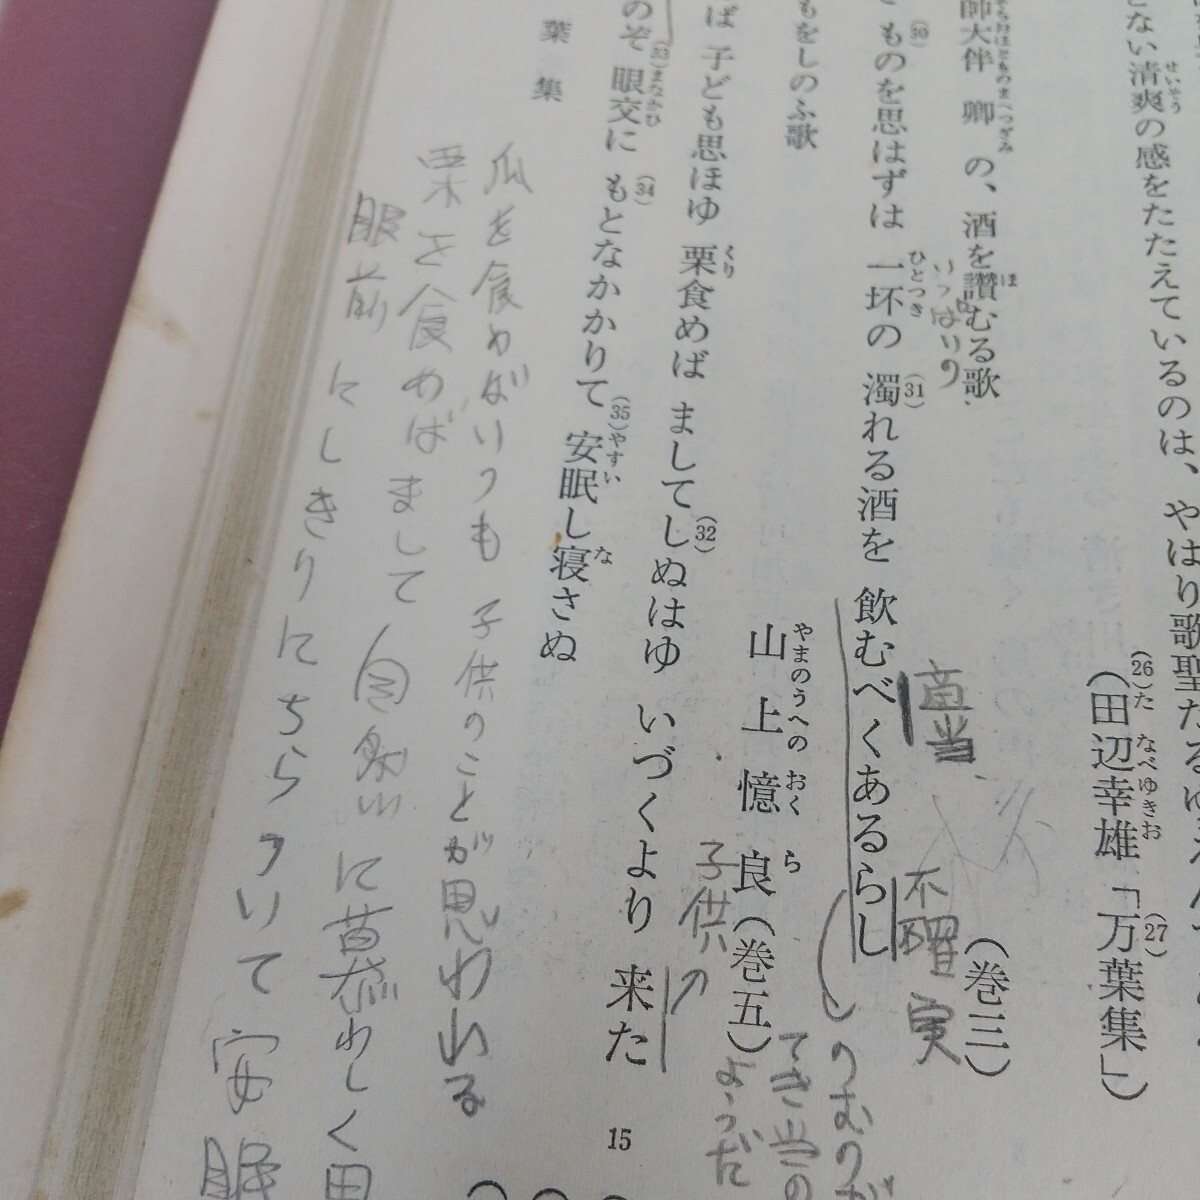 とない清爽の感をたたえているのは、やはり歌聖たるゆえん
せいそう
(26)(田辺幸雄「万葉集」)(27)
た なべゆきお
師大伴 卿 の、酒を讃むる歌
ほ
(巻三)
ものを思はずは 一坏の 濁れる酒を 飲むべくあるらし
(30) ひとつき (31)
いっぱいの
適当
不確実
のむのが
てき当の
ようだ
もをしのふ歌
山上憶良(巻五)
やまのうへの おくら
ば 子ども思ほゆ 栗食めば ましてしぬはゆ いづくより 来た
くり (32)
子供
のぞ 眼交に もとなかかりて 安眠し寝さぬ
(33)まなかひ (34) (35)やすい な
葉集
15
瓜を食めばいつも 子供のことが思われる
栗を食めば まして 自然に慕わしく思
眼前にしきりにちらついて安眠